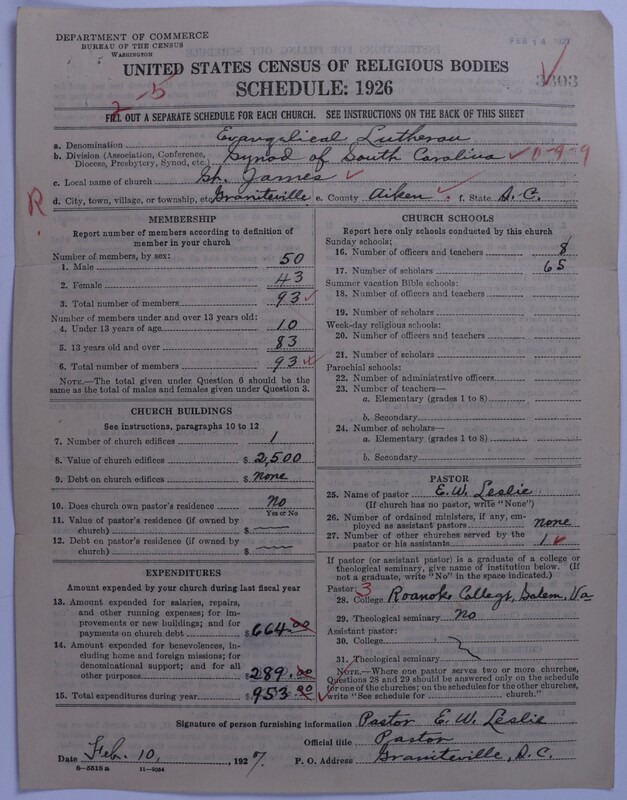 DEPARTMENT OF COMMERCE
BUREAU OF THE CENSUS
WASHINGTON
FEB 14 1927
UNITED STATES CENSUS OF RELIGIOUS BODIES
SCHEDULE: 1926
3303
2-5
FILL OUT A SEPARATE SCHEDULE FOR EACH CHURCH. SEE INSTRUCTIONS ON THE BACK OF THIS SHEET
a. Denomination Evangelical Lutheran
b. Division (Association, Conference, Diocese, Presbytery, Synod, etc.) Synod of South Carolina ✓ 0-4-9
c. Local name of church St. James ✓
R
d. City, town, village, or township, etc. Graniteville e. County Aiken f. State S.C.
MEMBERSHIP
Report number of members according to definition of
member in your church
Number of members, by sex:
1. Male 50
2. Female 43
3. Total number of members 93 ✓
Number of members under and over 13 years old:
4. Under 13 years of age 10
5. 13 years old and over 83
6. Total number of members 93
NOTE.—The total given under Question 6 should be the
same as the total of males and females given under Question 3.
CHURCH BUILDINGS
See instructions, paragraphs 10 to 12
7. Number of church edifices 1
8. Value of church edifices $ 2,500
9. Debt on church edifices $ none
10. Does church own pastor's residence No
Yes or No
11. Value of pastor's residence (if owned by
church) $ —
12. Debt on pastor's residence (if owned by
church) $ —
EXPENDITURES
Amount expended by your church during last fiscal year
13. Amount expended for salaries, repairs,
and other running expenses; for im-
provements or new buildings; and for
payments on church debt $ 664.00
14. Amount expended for benevolences, in-
cluding home and foreign missions; for
denominational support; and for all
other purposes $ 289.00
15. Total expenditures during year $ 953.00 ✓
CHURCH SCHOOLS
Report here only schools conducted by this church
Sunday schools:
16. Number of officers and teachers 8
17. Number of scholars 65
Summer vacation Bible schools:
18. Number of officers and teachers
19. Number of scholars
Week-day religious schools:
20. Number of officers and teachers
21. Number of scholars
Parochial schools:
22. Number of administrative officers
23. Number of teachers—
a. Elementary (grades 1 to 8)
b. Secondary
24. Number of scholars—
a. Elementary (grades 1 to 8)
b. Secondary
PASTOR
25. Name of pastor E. W. Leslie
(If church has no pastor, write "None")
26. Number of ordained ministers, if any, em-
ployed as assistant pastors none
27. Number of other churches served by the
pastor or his assistants 1 ✓
If pastor (or assistant pastor) is a graduate of a college or
theological seminary, give name of institution below. (If
not a graduate, write "No" in the space indicated.)
Pastor: 3
28. College Roanoke College, Salem, Va
29. Theological seminary No
Assistant pastor:
30. College
31. Theological seminary
NOTE.—Where one pastor serves two or more churches,
Questions 28 and 29 should be answered only on the schedule
for one of the churches; on the schedules for the other churches,
write "See schedule for church."
Signature of person furnishing information Pastor E. W. Leslie
Official title Pastor
Date Feb. 10, 1927. P. O. Address Graniteville, S.C.
8-5518a 11-9354